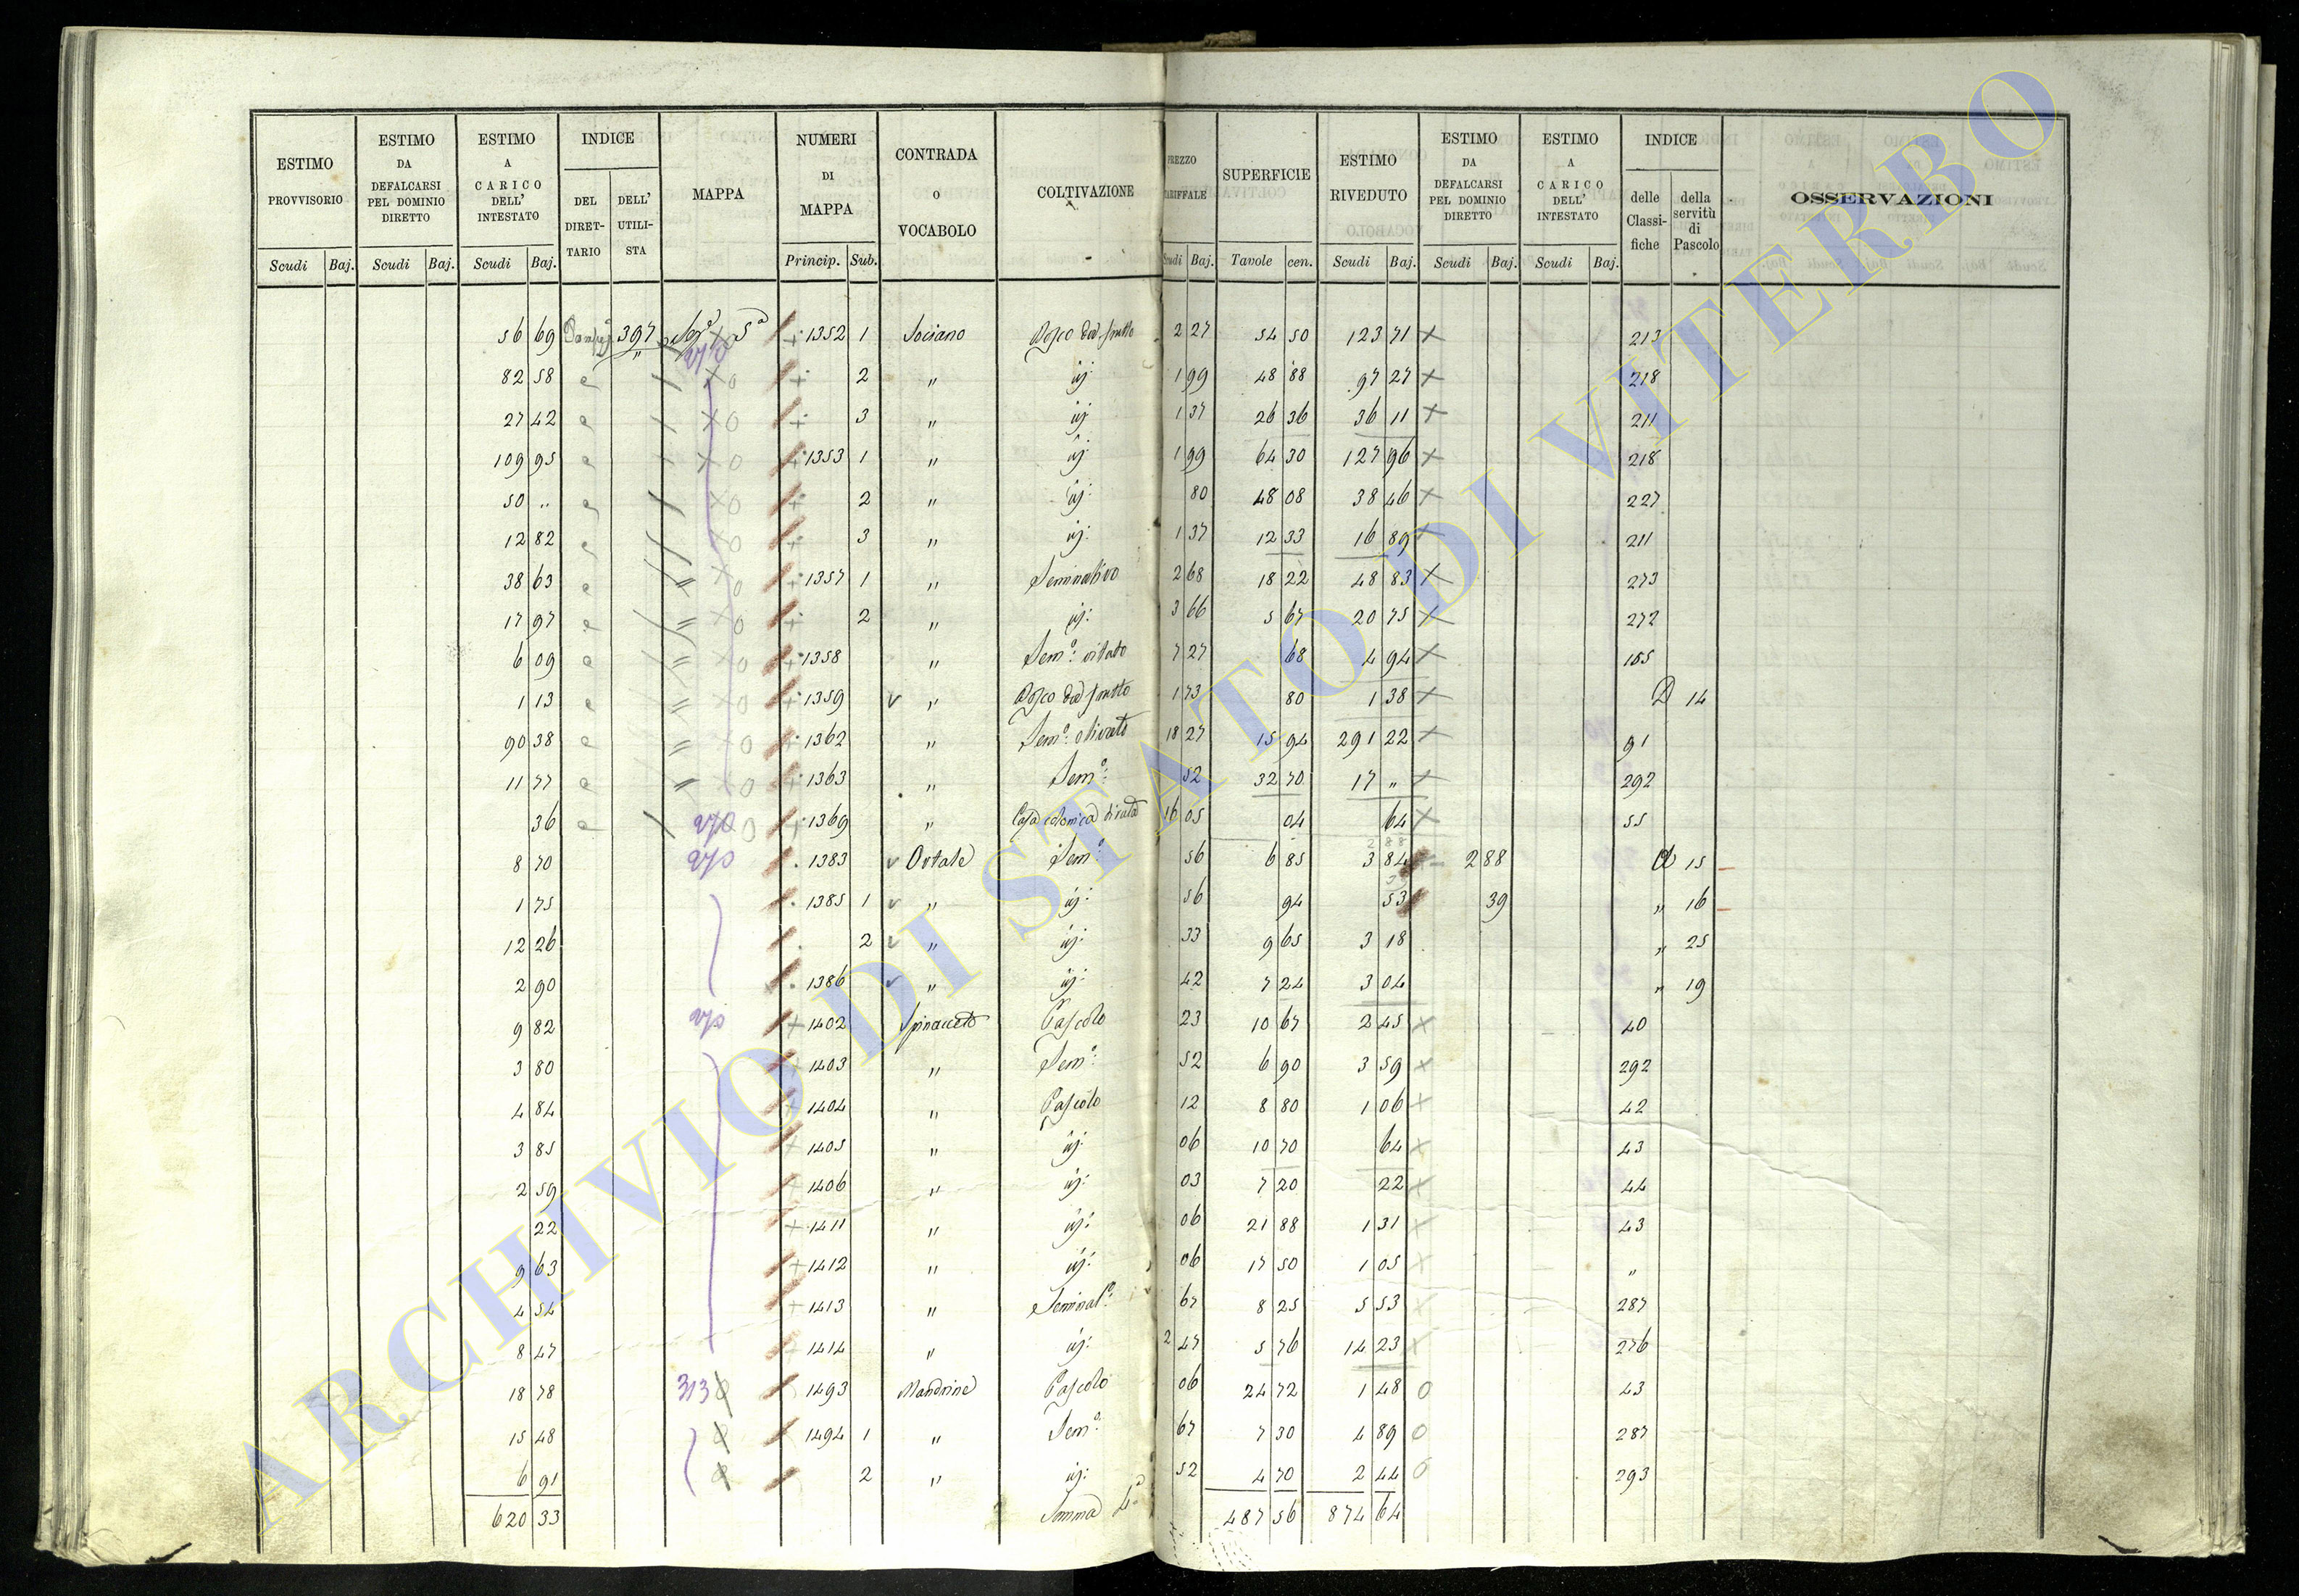 ESTIMO PROVVISORIO Scudi Baj.
ESTIMO DA DEFALCARSI PEL DOMINIO DIRETTO Scudi Baj.
ESTIMO A CARICO DELL' INTESTATO Scudi Baj.
INDICE DEL DIRETTARIO DELL' UTILISTA
MAPPA
NUMERI DI MAPPA Princip. Sub.
CONTRADA O VOCABOLO
COLTIVAZIONE
PREZZO TARIFFALE Scudi Baj.
SUPERFICIE Tavole cen.
ESTIMO RIVEDUTO Scudi Baj.
ESTIMO DA DEFALCARSI PEL DOMINIO DIRETTO Scudi Baj.
ESTIMO A CARICO DELL' INTESTATO Scudi Baj.
INDICE delle Classifiche della servitù di Pascolo
OSSERVAZIONI
56 69 397 Sez.ª 5ª + 1352 1 Sociano Bosco da frutto 2 27 54 50 123 71 + 213
82 58 + 2 " id: 1 99 48 88 97 27 + 218
27 42 + 3 " id: 1 37 26 36 36 11 + 211
109 95 + 1353 1 " id: 1 99 64 30 127 96 + 218
50 .. + 2 " id: 80 48 08 38 46 + 227
12 82 + 3 " id: 1 37 12 33 16 89 + 211
38 63 + 1357 1 " Seminativo 2 68 18 22 48 83 + 273
17 97 + 2 " id: 3 66 5 67 20 75 + 272
6 09 + 1358 " Sem.º: vitato 7 27 68 4 94 + 155
1 13 + 1359 v " Bosco da frutto 1 73 80 1 38 + D 14
90 38 + 1362 " Sem.º: olivato 18 27 15 94 291 22 + 91
11 77 + 1363 " Sem.º: 52 32 70 17 " + 292
36 + 1369 " Casa colonica dirutà 16 05 04 64 + 55
8 70 1383 v Ortale Sem.º 56 6 85 3 84 2 88 15
1 75 1385 1 v " id: 56 94 53 39 " 16
12 26 2 v " id: 33 9 65 3 18 " 25
2 90 1386 v " id: 42 7 24 3 04 " 19
9 82 + 1402 Spinaceto Pascolo 23 10 67 2 45 + 40
3 80 + 1403 " Sem.º: 52 6 90 3 59 + 292
4 84 + 1404 " Pascolo 12 8 80 1 06 + 42
3 85 + 1405 " id: 06 10 70 64 + 43
2 59 + 1406 " id: 03 7 20 22 + 44
22 + 1411 " id: 06 21 88 1 31 + 43
9 63 + 1412 " id: 06 17 50 1 05 + "
4 54 + 1413 " Seminat.º: 67 8 25 5 53 + 287
8 47 + 1414 " id: 2 47 5 76 14 23 + 276
18 78 313 1493 Mandrine Pascolo 06 24 72 1 48 0 43
15 48 1494 1 " Sem.º: 67 7 30 4 89 0 287
6 91 2 " id: 52 4 70 2 44 0 293
620 33 Somma 4ª 487 56 874 64
ARCHIVIO DI STATO DI VITERBO